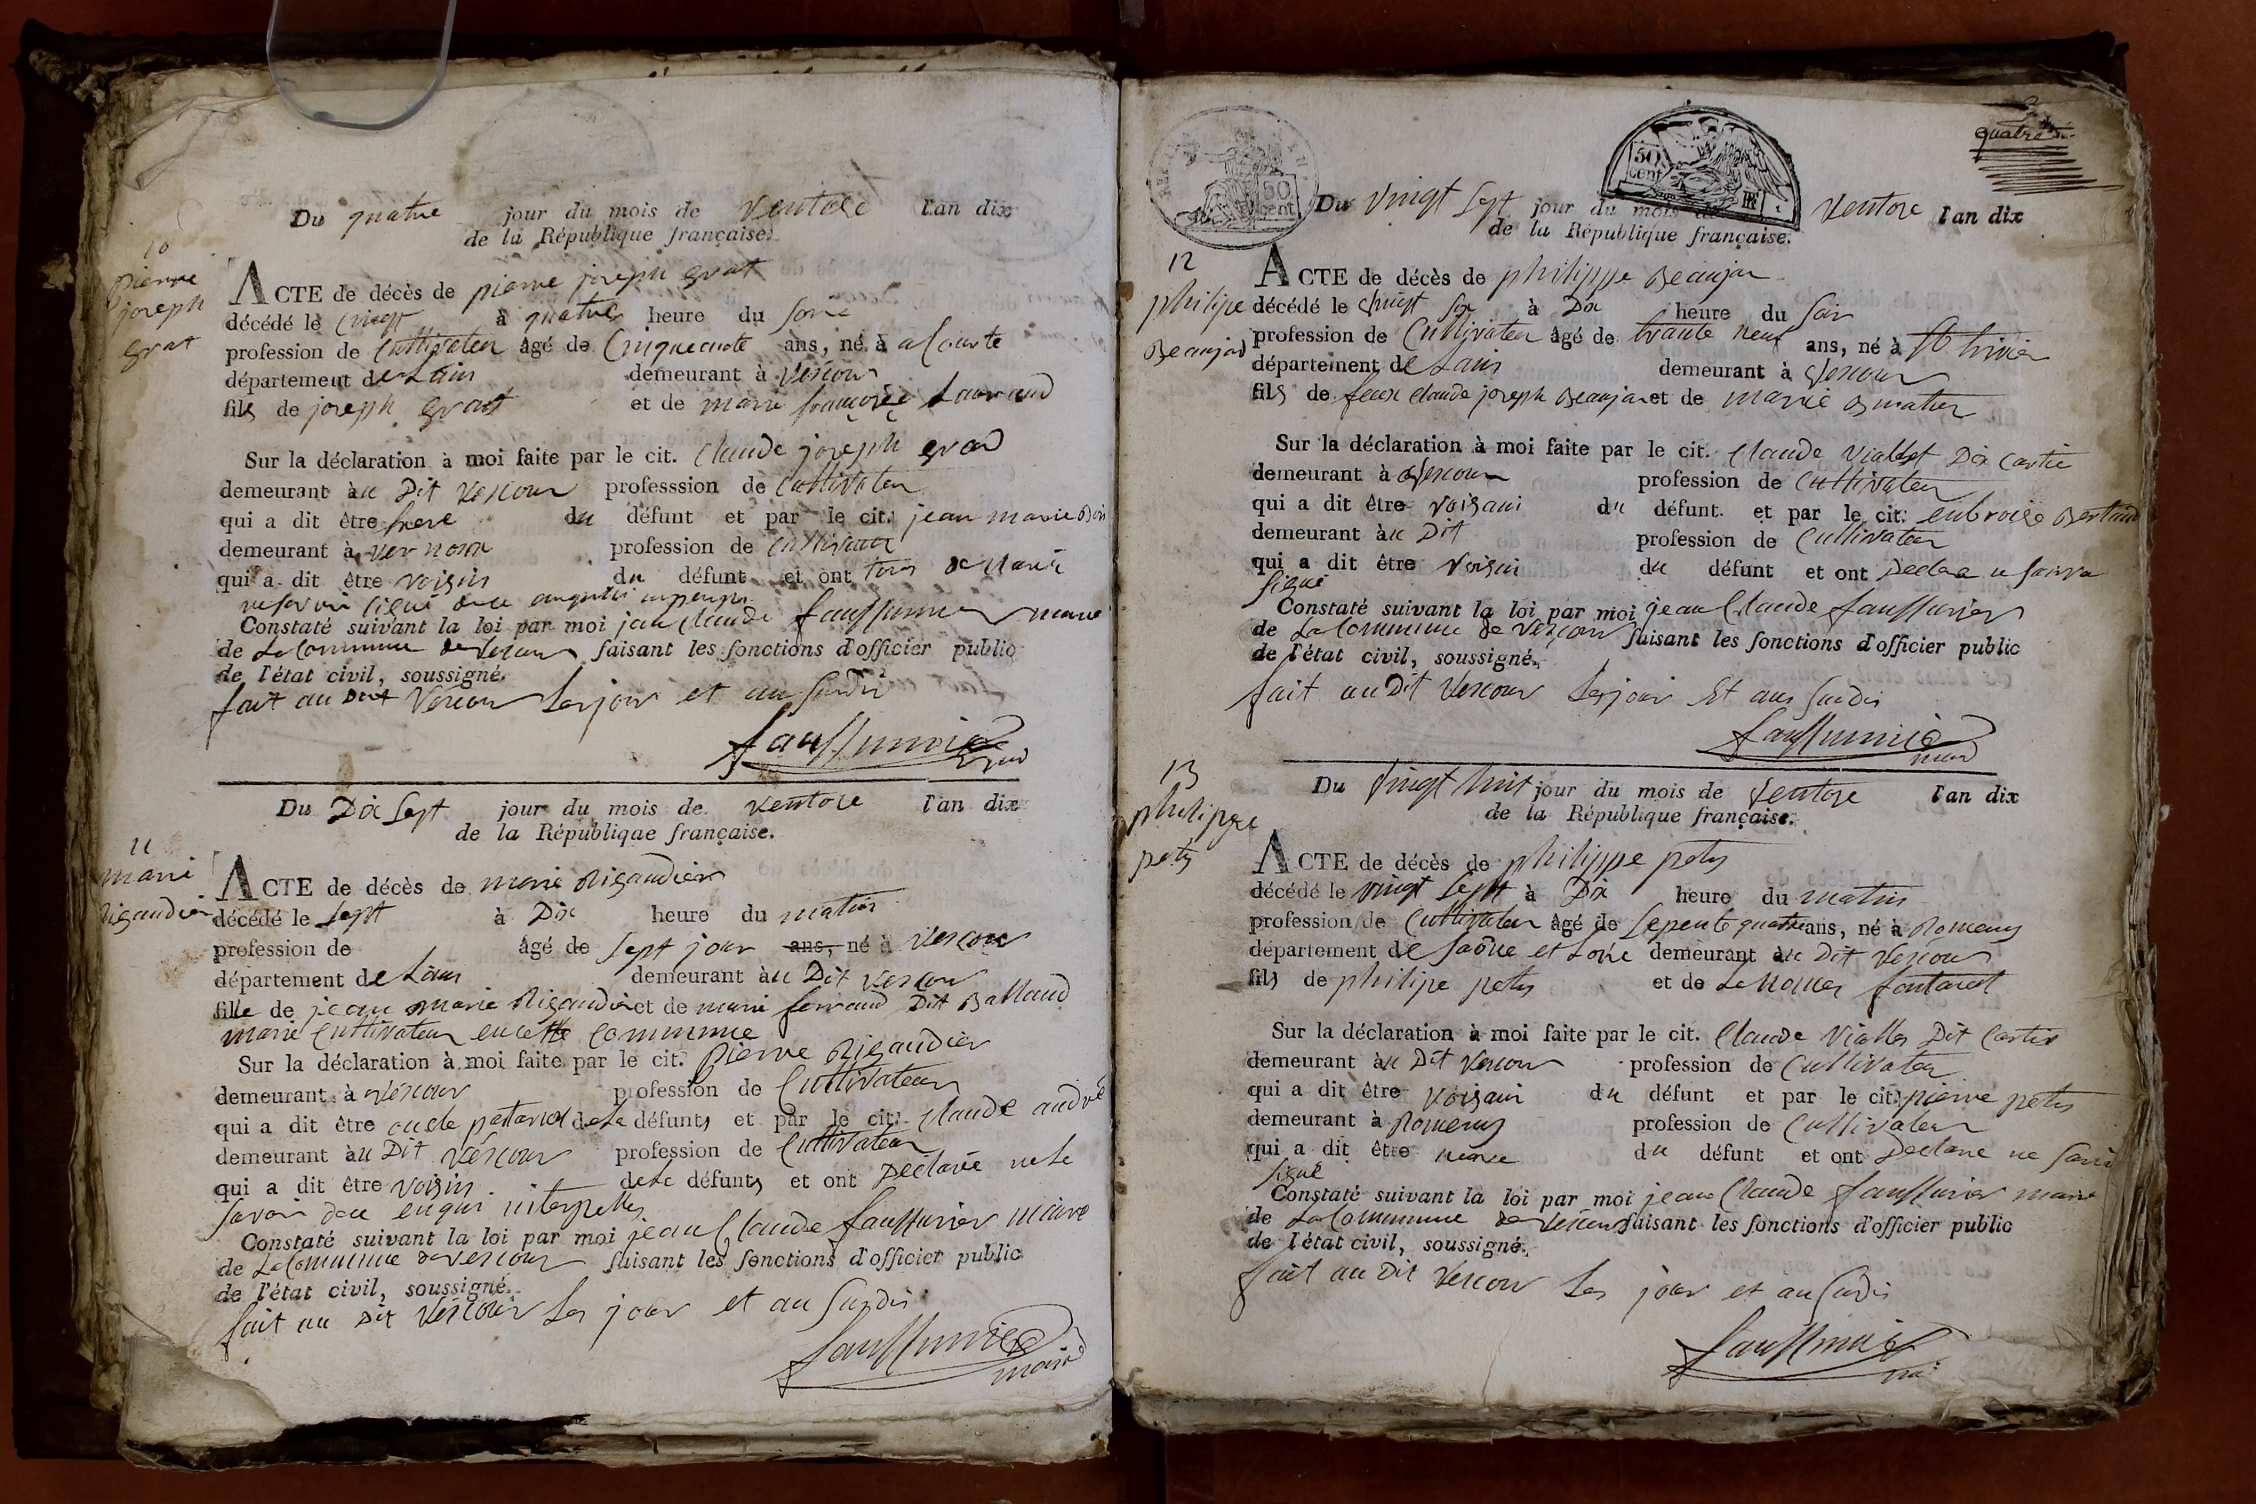 Du quatre jour du mois de ventose l'an dix
de la République française.
10
pierre
joseph
grat
ACTE de décès de pierre joseph grat
décédé le à quatre heure du soire
profession de Cultivateur âgé de Cinquente ans, né à a Courte
département de Lain demeurant à vescour
fils de joseph grat et de marie françoise Lavrand
Sur la déclaration à moi faite par le cit. Claude joseph grad
demeurant au Dit vescour professsion de Cultivateur
qui a dit être frere du défunt et par le cit. jean marie
demeurant à vernoux profession de Cultivateur
qui a dit être voisin du défunt et ont tous declaré
ne savoir signé de ce enquis
Constaté suivant la loi par moi jean Claude faussurier maire
de La Commune de vescour faisant les fonctions d'officier public
de l'état civil, soussigné.
fait au Dit vescour Les jour et an susdis
faussurier
maire
Du Dix sept jour du mois de ventose l'an dix
de la République française.
11
marie
Rigaudier
ACTE de décès de marie Rigaudier
décédé le sept à Dix heure du matin
profession de âgé de sept jour ans, né à vescour
département de Lain demeurant au Dit vescour
fille de jean marie Rigaudier et de marie ferraud Dit Balland
marie Cultivateur en cette commune
Sur la déclaration à moi faite par le cit. pierre Rigaudier
demeurant à vescour profession de Cultivateur
qui a dit être oncle paternel de La défunts et par le cit. Claude andré
demeurant au Dit vescour profession de Cultivateur
qui a dit être voisin de La défunts et ont Declarée ne Le
savoir de ce enquis interpelles
Constaté suivant la loi par moi jean Claude faussurier maire
de La Commune de vescour faisant les fonctions d'officier public
de l'état civil, soussigné.
fait au Dit vescour Les jour et an susdis
faussurier
maire
quatre
50
cent
50
cent
RF
Du vingt sept jour du mois de ventose l'an dix
de la République française.
12
philipe
Beaujard
ACTE de décès de philippe Beaujar
décédé le vingt six à Dix heure du soir
profession de Cultivateur âgé de trante neuf ans, né à St trivier
département de Lain demeurant à vescour
fils de feux Claude joseph Beaujar et de marie
Sur la déclaration à moi faite par le cit. Claude viallet Dit Cartie
demeurant à vescour profession de Cultivateur
qui a dit être voisain du défunt. et par le cit. enbroise
demeurant au Dit profession de Cultivateur
qui a dit être voisin du défunt et ont Declare ne savoir
signé
Constaté suivant la loi par moi jean Claude faussurier
de La Commune de vescour faisant les fonctions d'officier public
de l'état civil, soussigné.
fait au Dit vescour Les jour Et ans susdis
faussurier
maire
Du vingt huit jour du mois de ventose l'an dix
de la République française.
13
philippe
petis
ACTE de décès de philippe petis
décédé le vingt sept à Dix heure du matin
profession de Cultivateur âgé de sepente quatre ans, né à Romenis
département de saône et Loire demeurant au Dit vescour
fils de philipe petis et de Le nomes fontanet
Sur la déclaration à moi faite par le cit. Claude viallet Dit Cartie
demeurant au Dit vescour profession de Cultivateur
qui a dit être voisain du défunt et par le cit. pierre petis
demeurant à Romenis profession de Cultivateur
qui a dit être neveu du défunt et ont Declare ne savoir
signé
Constaté suivant la loi par moi jean Claude faussurier maire
de La Commune de vescour faisant les fonctions d'officier public
de l'état civil, soussigné.
fait au Dit vescour Les jour et an susdis
faussurier